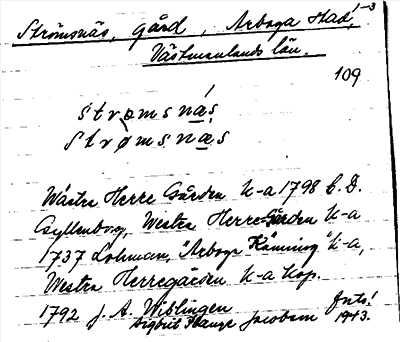 Strömsnäs, gård, Arboga stad, 1-3
Västmanlands län.
109
strømsnæs
Strømsnæs
Wästra Herre Gården k-a 1798 C. D.
Gyllenborg, Westra Herre Gården k-a
1737 Lohman, "Arboga Känning" k-a,
Westra Herregården k-a kop.
1792 J. A. Wiblingen
Sigbrit Plange Jacobson Ants! 1943.